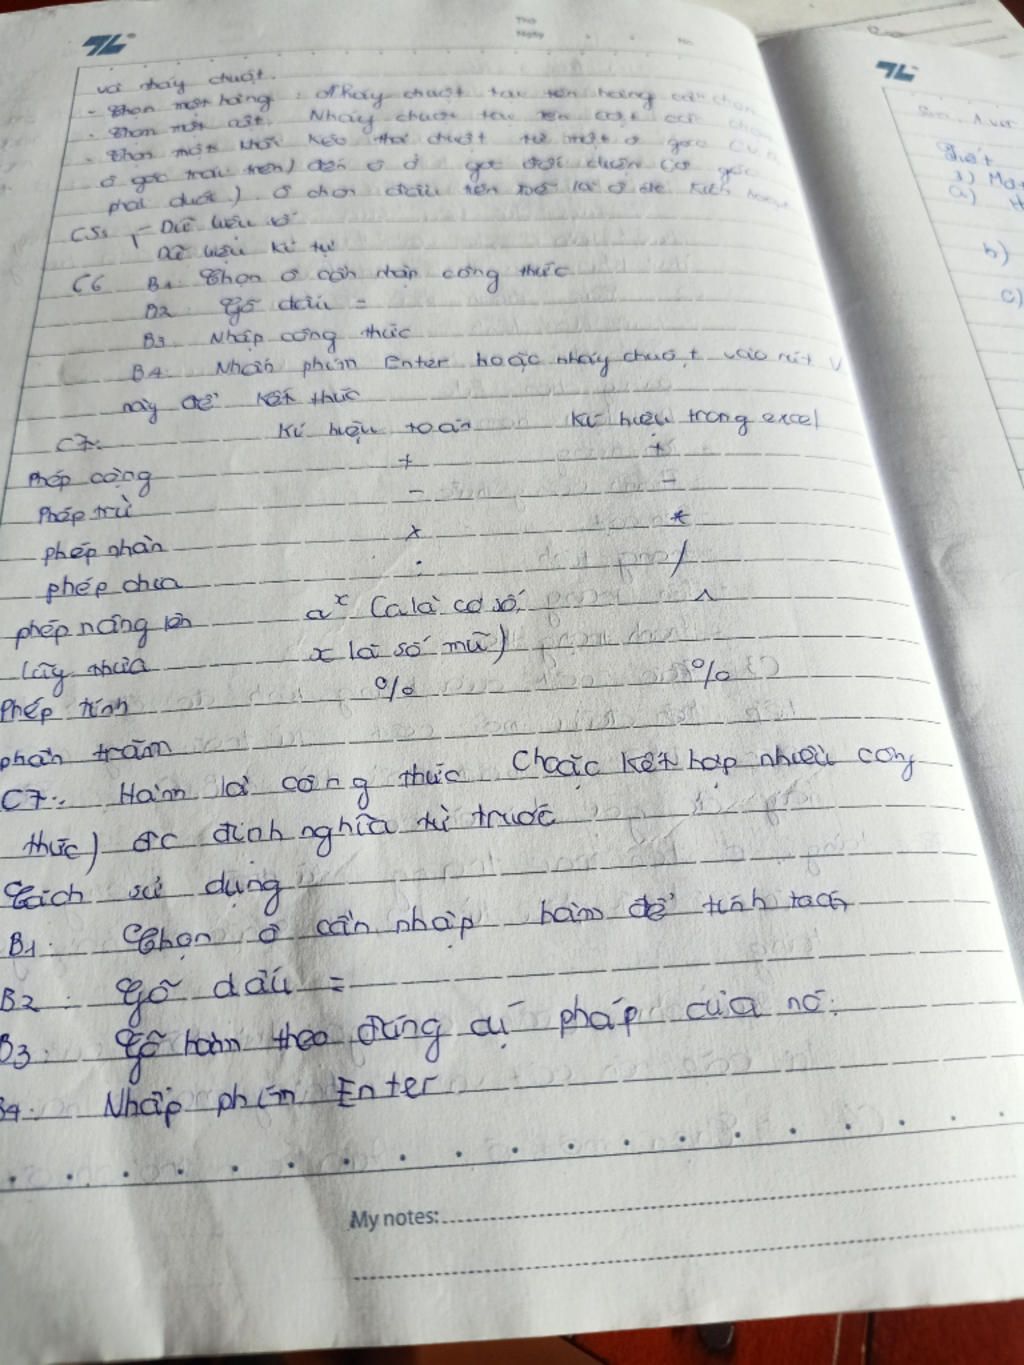 Thứ
Ngày No.
và nháy chuột.
- Chọn một hàng : Nháy chuột tại tên hàng cần chọn
- Chọn một cột. Nháy chuột tại tên cột cần chọn
- Chọn một khối Kéo thả chuột từ một ô góc
ô góc trái trên) đến ô ở góc đối diện (ô góc
phải dưới) ô chọn đầu tiên sẽ là ô
C5: - Dữ liệu số
Dữ liệu kí tự
C6 B1 Chọn ô cần nhập công thức
B2. Gõ dấu =
B3. Nhập công thức
B4. Nhấn phím Enter hoặc nháy chuột vào nút V
này để kết thúc
C7: Kí hiệu toán Kí hiệu trong excel
Phép cộng + +
Phép trừ - -
phép nhân x *
phép chia : /
phép nâng lên a^x (a là cơ số, ^
lũy thừa x là số mũ)
Phép tính % %
phần trăm
C7: Hàm là công thức (hoặc kết hợp nhiều công
thức) đc định nghĩa từ trước
Cách sử dụng
B1: Chọn ô cần nhập hàm để tính toán
B2: Gõ dấu =
B3: Gõ hàm theo đúng cú pháp của nó.
B4: Nhấp phím Enter
My notes:
a)
b)
c)